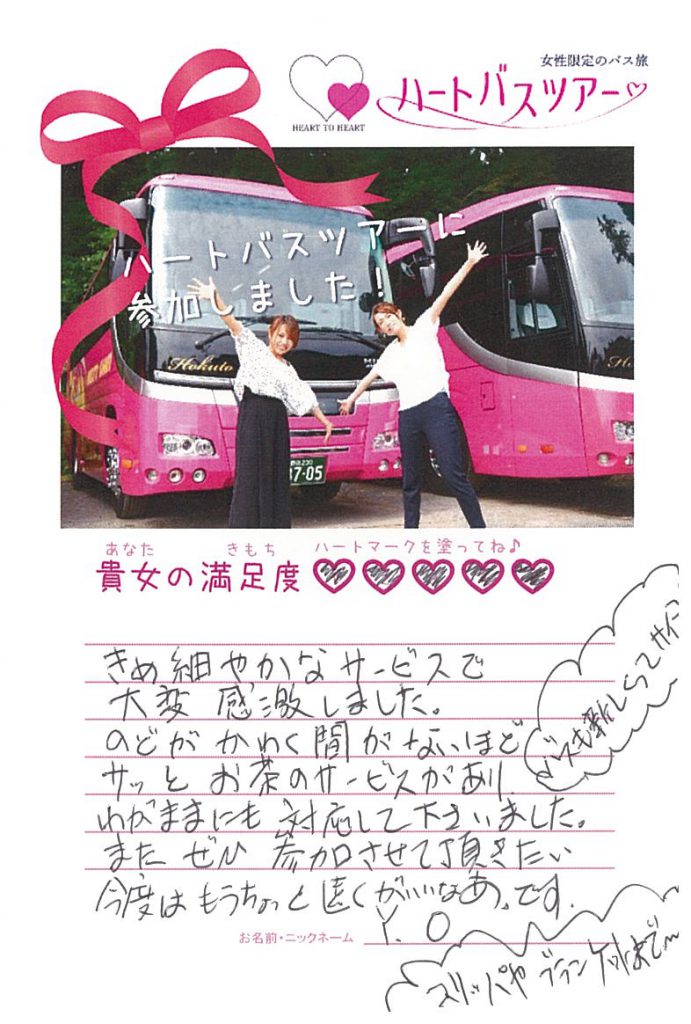 女性限定のバス旅
ハートバスツアー♡
HEART TO HEART
ハートバスツアーに
参加しました!
Hokuto
37-05
あなた きもち ハートマークを塗ってね♪
貴女の満足度
きめ細やかなサービスで
大変感激しました。
のどがかわく間がないほど
サッとお茶のサービスがあり、
わがままにも対応して下さいました。
またぜひ参加させて頂きたい
今度はもうちょっと遠くがいいなあ。です。
お名前・ニックネーム Y. O
バスも新しくって
スリッパやブランケットまで〜